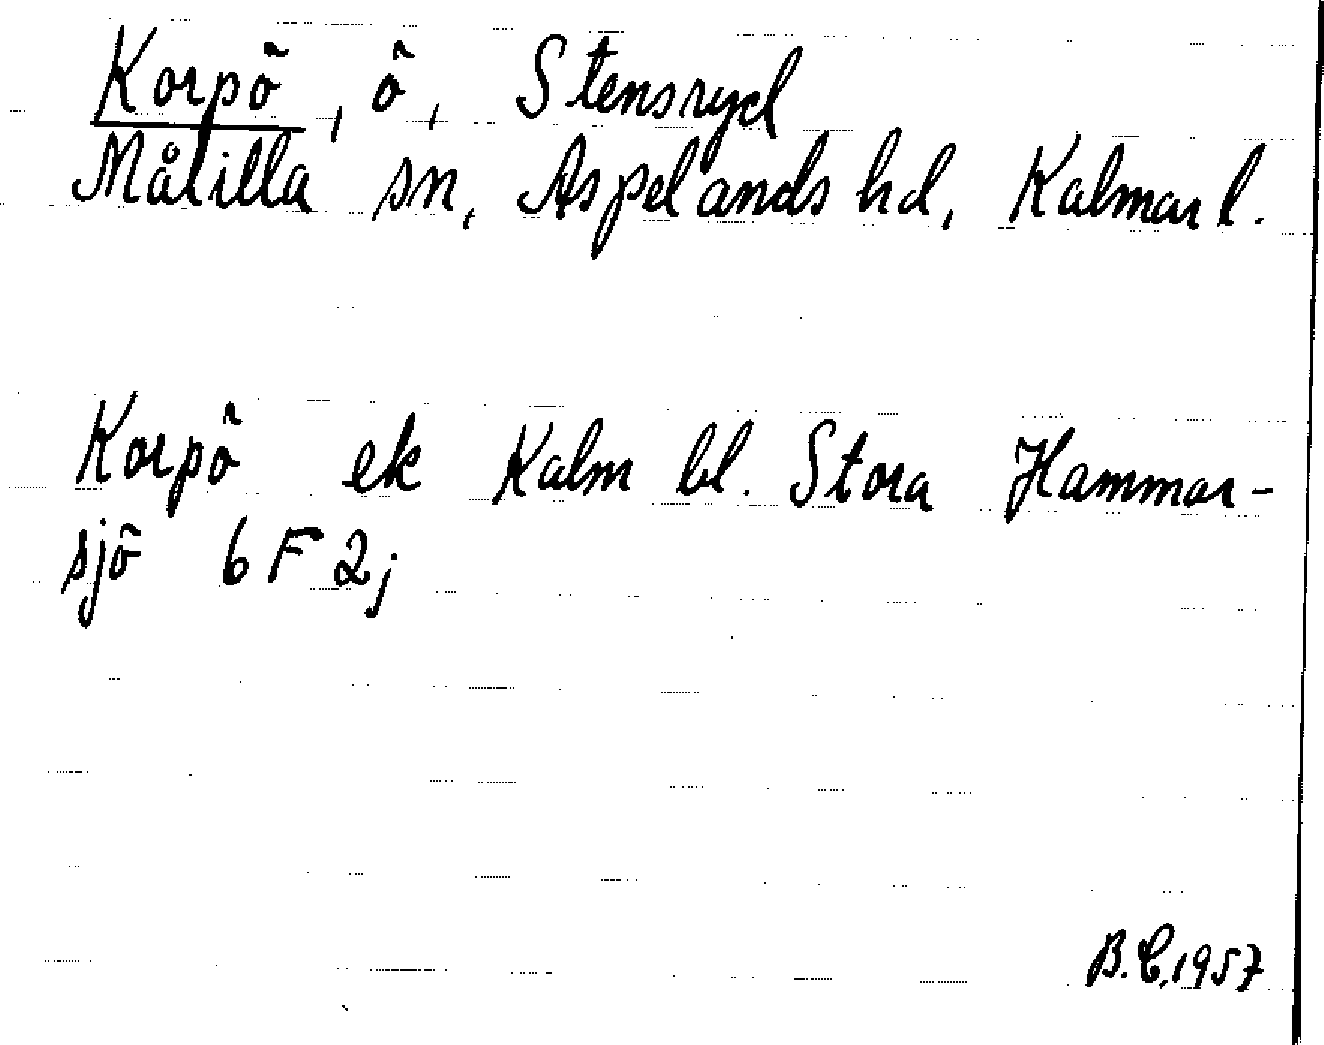 Korpö, ö, Stensryd
Målilla sn, Aspelands hd, Kalmar l.
Korpö ek Kalm bl. Stora Hammar-
sjö 6 F 2j
B.C. 1957